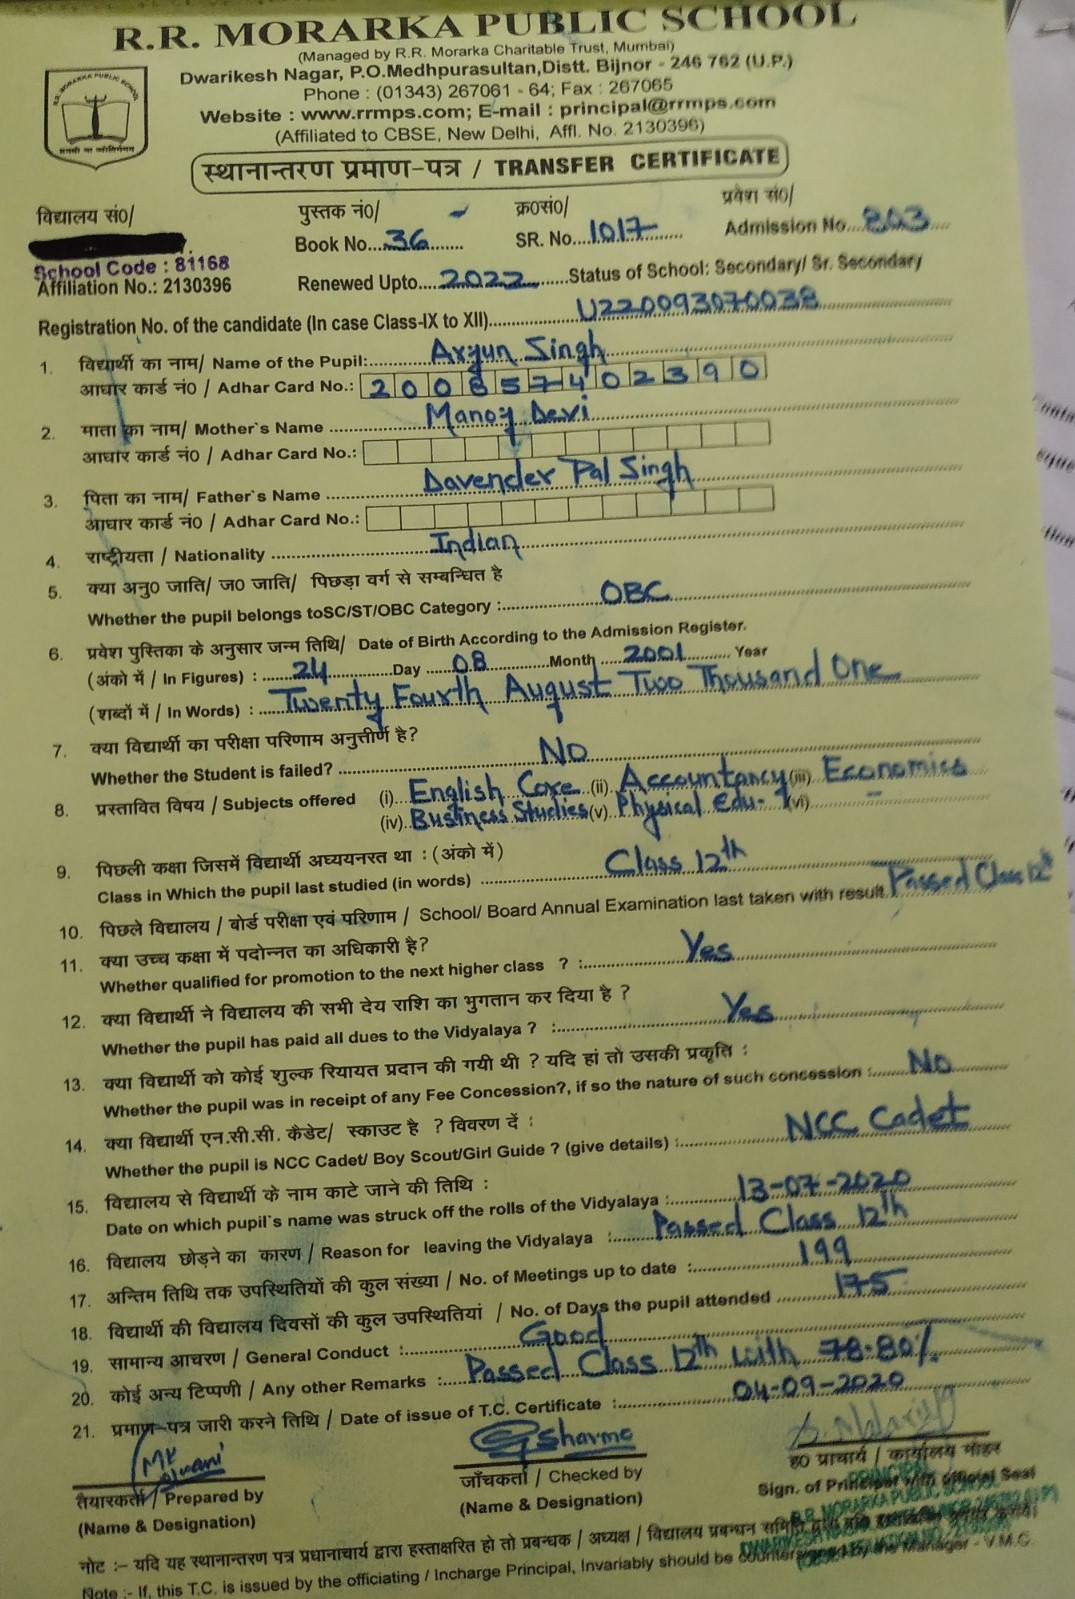 R.R. MORARKA PUBLIC SCHOOL
(Managed by R.R. Morarka Charitable Trust, Mumbai)
Dwarikesh Nagar, P.O.Medhpurasultan,Distt. Bijnor - 246 762 (U.P.)
Phone : (01343) 267061 - 64; Fax : 267065
Website : www.rrmps.com; E-mail : principal@rrmps.com
(Affiliated to CBSE, New Delhi, Affl. No. 2130396)
R.R. MORARKA PUBLIC SCHOOL
स्थानान्तरण प्रमाण-पत्र / TRANSFER CERTIFICATE
विद्यालय सं0/ पुस्तक नं0/ क्र0सं0/ प्रवेश सं0/
Book No...36 SR. No...1017 Admission No...803
School Code : 81168
Affiliation No.: 2130396 Renewed Upto....2022 Status of School: Secondary/ Sr. Secondary
Registration No. of the candidate (In case Class-IX to XII) U220093070038
1. विद्यार्थी का नाम/ Name of the Pupil: Aryun Singh
आधार कार्ड नं0 / Adhar Card No.: 200857402390
2. माता का नाम/ Mother`s Name Manoy Devi
आधार कार्ड नं0 / Adhar Card No.:
3. पिता का नाम/ Father`s Name Davender Pal Singh
आधार कार्ड नं0 / Adhar Card No.:
4. राष्ट्रीयता / Nationality Indian
5. क्या अनु0 जाति/ ज0 जाति/ पिछड़ा वर्ग से सम्बन्धित है
Whether the pupil belongs toSC/ST/OBC Category : OBC
6. प्रवेश पुस्तिका के अनुसार जन्म तिथि/ Date of Birth According to the Admission Register.
(अंको में / In Figures) : 24 Day 08 Month 2001 Year
(शब्दों में / In Words) : Twenty Fourth August Two Thousand One
7. क्या विद्यार्थी का परीक्षा परिणाम अनुत्तीर्ण है?
Whether the Student is failed? No
8. प्रस्तावित विषय / Subjects offered (i) English Core (ii) Accountancy (iii) Economics
(iv) Business Studies (v) Physical Edu- (vi) -
9. पिछली कक्षा जिसमें विद्यार्थी अध्ययनरत था : (अंको में)
Class in Which the pupil last studied (in words) Class 12th
10. पिछले विद्यालय / बोर्ड परीक्षा एवं परिणाम / School/ Board Annual Examination last taken with result Passed Class 12th
11. क्या उच्च कक्षा में पदोन्नत का अधिकारी है?
Whether qualified for promotion to the next higher class ? : Yes
12. क्या विद्यार्थी ने विद्यालय की सभी देय राशि का भुगतान कर दिया है ?
Whether the pupil has paid all dues to the Vidyalaya ? : Yes
13. क्या विद्यार्थी को कोई शुल्क रियायत प्रदान की गयी थी ? यदि हां तो उसकी प्रकृति :
Whether the pupil was in receipt of any Fee Concession?, if so the nature of such concession : No
14. क्या विद्यार्थी एन.सी.सी. कैडेट/ स्काउट है ? विवरण दें :
Whether the pupil is NCC Cadet/ Boy Scout/Girl Guide ? (give details) : NCC Cadet
15. विद्यालय से विद्यार्थी के नाम काटे जाने की तिथि :
Date on which pupil`s name was struck off the rolls of the Vidyalaya : 13-07-2020
16. विद्यालय छोड़ने का कारण / Reason for leaving the Vidyalaya : Passed Class 12th
17. अन्तिम तिथि तक उपस्थितियों की कुल संख्या / No. of Meetings up to date : 199
18. विद्यार्थी की विद्यालय दिवसों की कुल उपस्थितियां / No. of Days the pupil attended 175
19. सामान्य आचरण / General Conduct : Good
20. कोई अन्य टिप्पणी / Any other Remarks : Passed Class 12th with 78.80%.
21. प्रमाण-पत्र जारी करने तिथि / Date of issue of T.C. Certificate : 04-09-2020
GSharma
तैयारकर्ता / Prepared by जाँचकर्ता / Checked by ह0 प्राचार्य / कार्यालय मोहर
(Name & Designation) (Name & Designation) Sign. of Principal with official Seal
PRINCIPAL
R.R. MORARKA PUBLIC SCHOOL
नोट :- यदि यह स्थानान्तरण पत्र प्रधानाचार्य द्वारा हस्ताक्षरित हो तो प्रबन्धक / अध्यक्ष / विद्यालय प्रबन्धन समिति द्वारा
Note :- If, this T.C. is issued by the officiating / Incharge Principal, Invariably should be countersigned by the Manager - V.M.C.